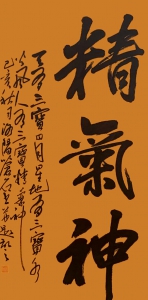 精氣神
天有三寶日月星地有三寶水
火風人有三寶精氣神